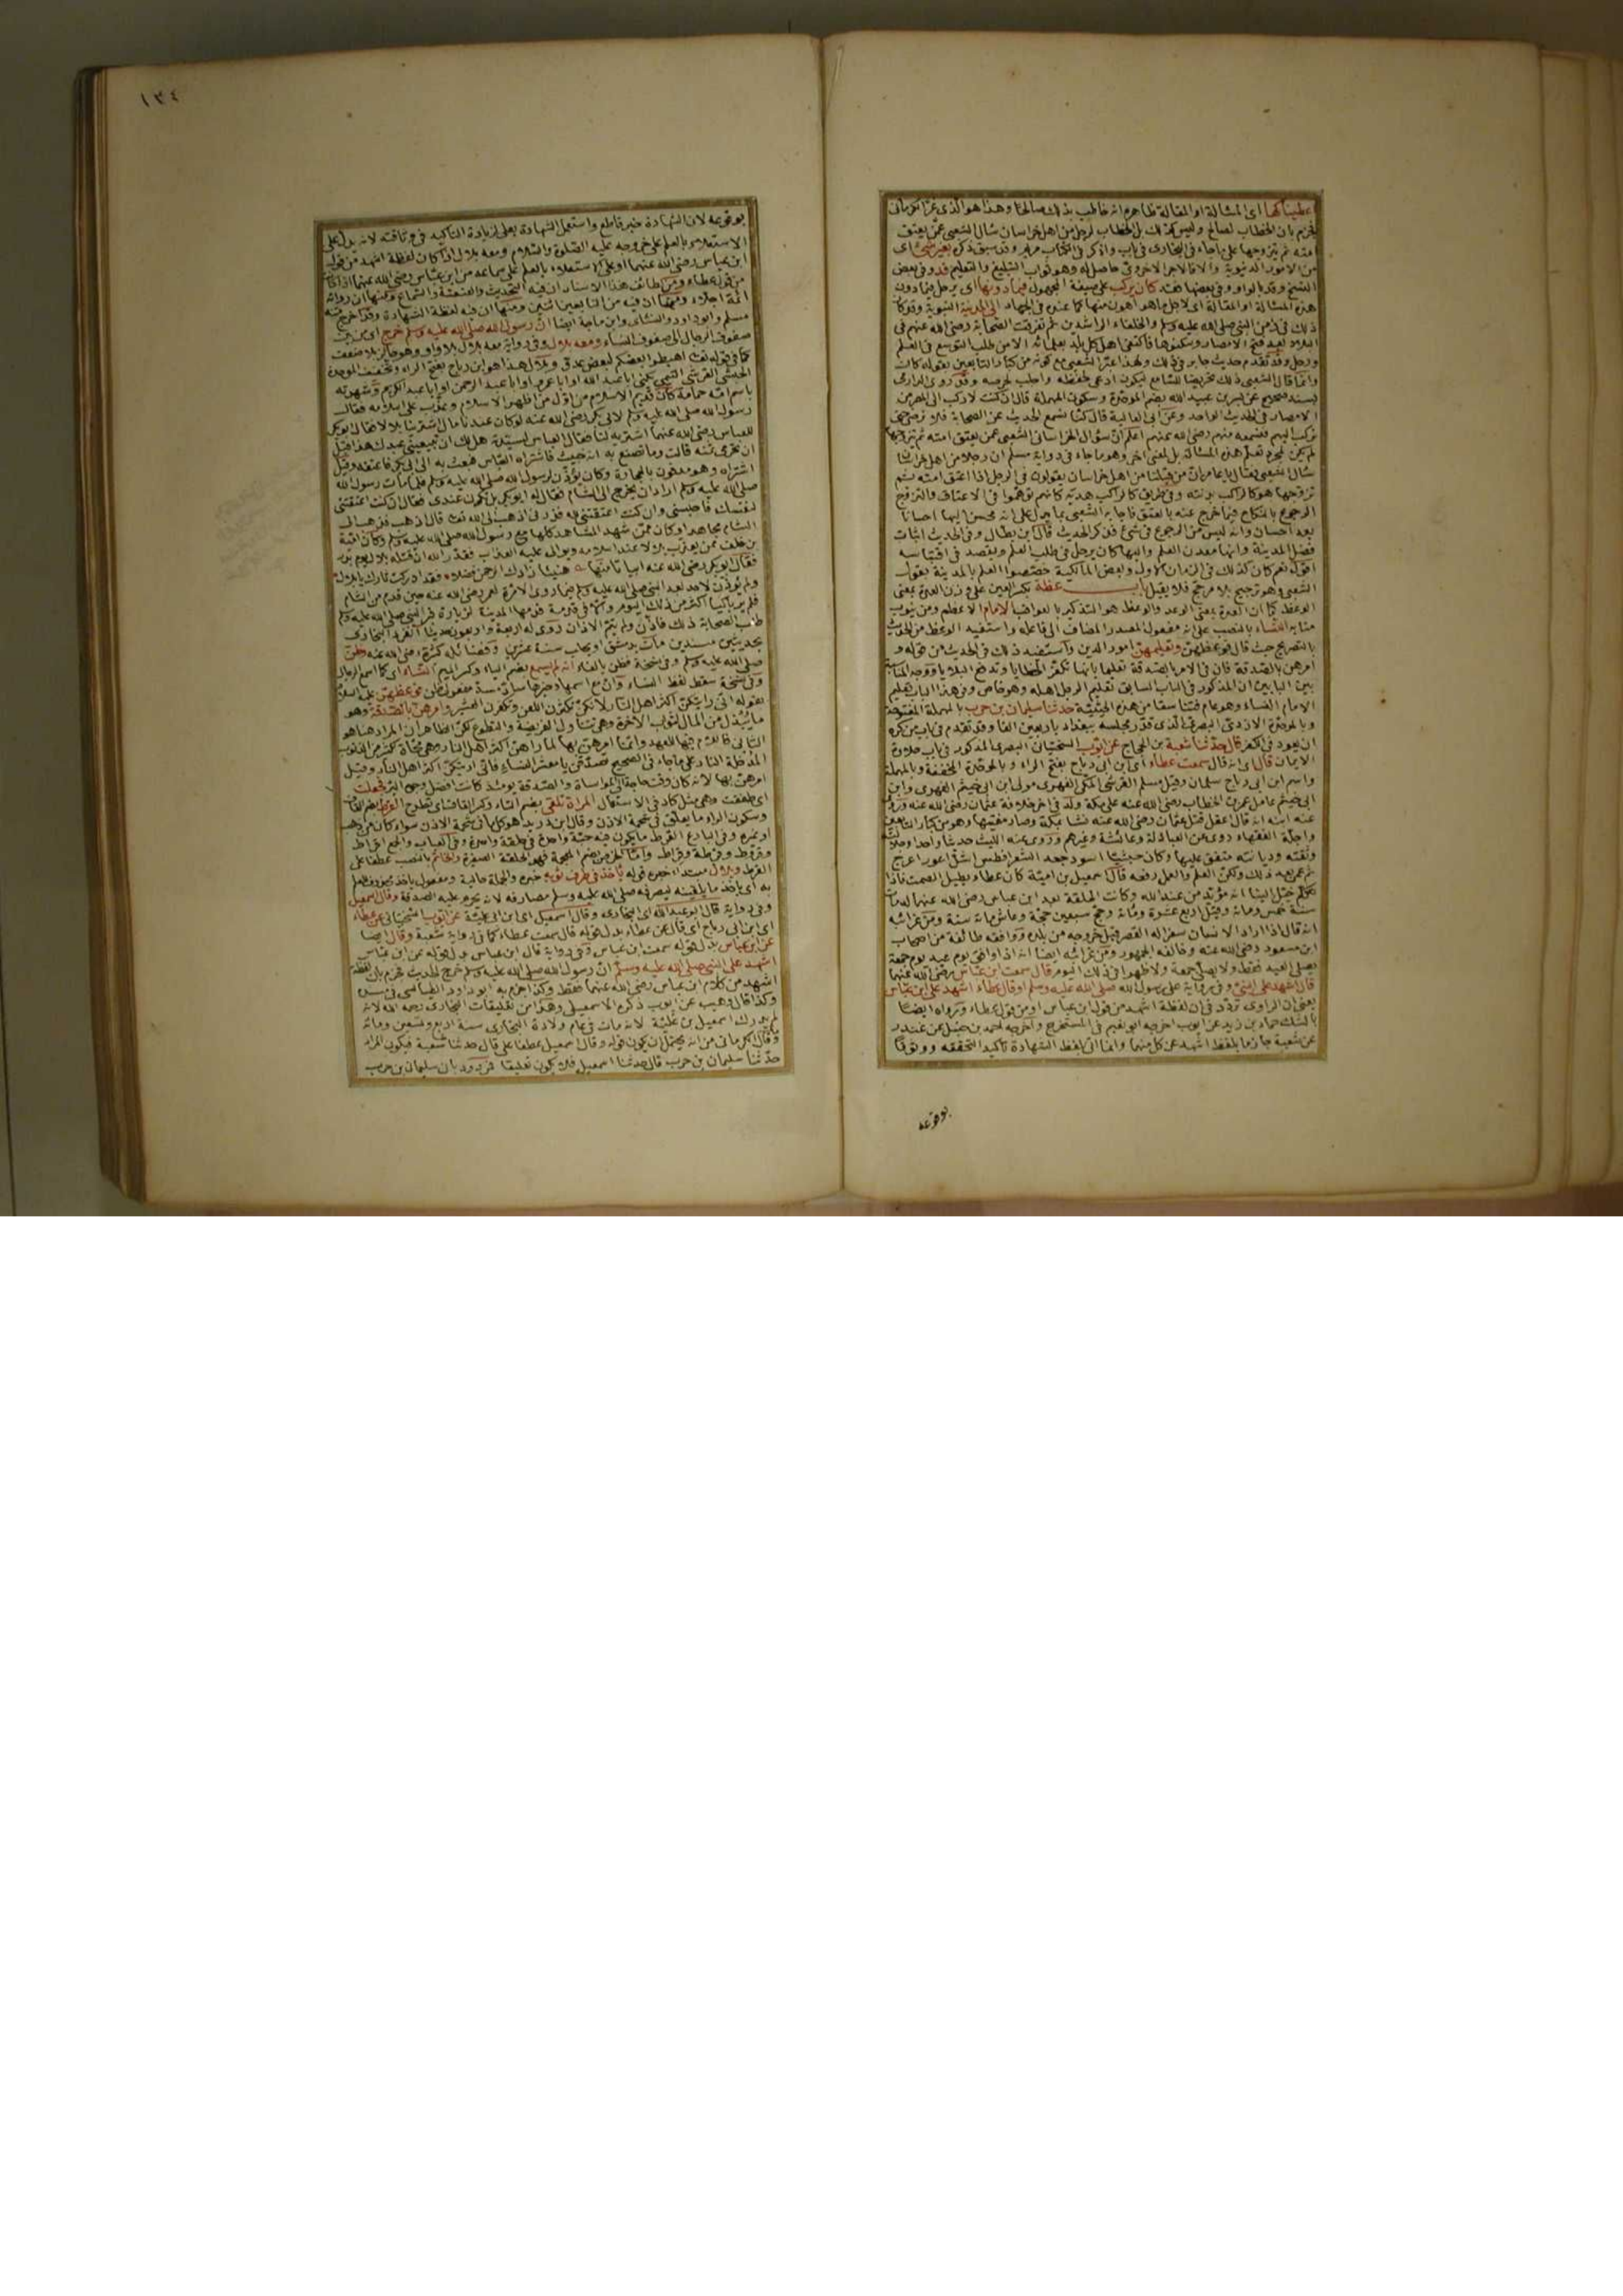 اعطيناكها اى المسألة او المقالة ظاهره انه خاطب بذلك صالحا وهذا هو الذى غر الكرمانى
فجزم بان الخطاب لصالح وليس كذلك بل الخطاب لرجل من اهل خراسان سأل الشعبى عمن يعتق
امته ثم يتزوجها على ما جاء فى البخارى فى باب واذكر فى الكتاب مريم وقد سبق ذكره بغير شىء اى
من الامور الدنيوية والا فالاجر الاخروى حاصل له وهو ثواب التبليغ والتعليم قد وفى بعض
النسخ وقد بالواو وفى بعضها فقد كان يركب على صيغة المجهول فيما دونها اى يرحل فيما دون
هذه المسألة او المقالة اى لاجل ما هو اهون منها كما عنده فى الجهاد الى المدينة النبوية وقد كان
ذلك فى زمن النبى صلى الله عليه وسلم والخلفاء الراشدين ثم تفرقت الصحابة رضى الله عنهم فى
البلاد بعد فتح الامصار وسكنوها فاكتفى اهل كل بلد بعلمائه الا من طلب التوسع فى العلم
ورحل وقد تقدم حديث جابر فى ذلك ولهذا عبر الشعبى مع كونه من كبار التابعين بقوله كان
وانما قال الشعبى ذلك تحريضا للسامع ليكون ادعى لحفظه واجلب لحرصه وقد روى الدارمى
بسند صحيح عن بسر بن عبيد الله بضم الموحدة وسكون المهملة قال ان كنت لاركب الى مصر من
الامصار فى الحديث الواحد وعن ابى العالية قال كنا نسمع الحديث عن الصحابة فلا نرضى حتى
نركب اليهم فنسمعه منهم رضى الله عنهم اعلم ان سؤال الخراسانى الشعبى عمن يعتق امته ثم يتزوجها
لم يكن لمجرد تعلم هذه المسألة بل لمعنى آخر وهو ما جاء فى رواية مسلم ان رجلا من اهل خراسان
سأل الشعبى فقال يا با عامر ان من قبلنا من اهل خراسان يقولون فى الرجل اذا اعتق امته ثم
تزوجها هو كالراكب بدنته وفى طريق كالراكب هديه كانهم توهموا فى الاعتاق والتزوج
الرجوع بالنكاح فيما خرج عنه بالعتق فاجابه الشعبى بما يدل على انه محسن اليها احسانا
بعد احسان وانه ليس من الرجوع فى شىء فذكر الحديث قال ابن بطال وفى الحديث اثبات
فضل المدينة وانها معدن العلم واليها كان يرحل فى طلب العلم ويقصد فى اقتباسه
اقول نعم كان كذلك فى الزمان الاول وبعض المالكية خصصوا العلم بالمدينة بقول
الشعبى وهو ترجيح بلا مرجح فلا يقبل باب عظة بكسر العين على وزن العدة بمعنى
الوعظ كما ان العدة بمعنى الوعد والوعظ هو التذكير بالعواقب الامام الاعظم ومن ينوب
منابه النساء بالنصب على انه مفعول المصدر المضاف الى فاعله واستفيد الوعظ من الحديث
بالتصريح حيث قال فوعظهن وتعليمهن امور الدين واستفيد ذلك فى الحديث من قوله و
امرهن بالصدقة فان فى الامر بالصدقة تعليما بانها تكفر الخطايا وتدفع البلايا ووجه المناسبة
بين البابين ان المذكور فى الباب السابق تعليم الرجل اهله وهو خاص وفى هذا الباب تعليم
الامام النساء وهو عام فتناسقا من هذه الحيثية حدثنا سليمان بن حرب بالمهملة المفتوحة
وبالموحدة الازدى البصرى الذى قدر مجلسه ببغداد باربعين الفا وقد تقدم فى باب من كره
ان يعود فى الكفر قال حدثنا شعبة بن الحجاج عن ايوب السختيانى البصرى المذكور فى باب حلاوة
الايمان قال اى انه قال سمعت عطاء اى ابن ابى رباح بفتح الراء وبالموحدة المخففة وبالمهملة
واسم ابى رباح سلمان وقيل مسلم القرشى المكى الفهرى مولى ابن ابى خيثم الفهرى وابن
ابى خيثم عامل عمر بن الخطاب رضى الله عنه على مكة ولد فى آخر خلافة عثمان رضى الله عنه وروى
عنه ابنه انه قال اعقل قتل عثمان رضى الله عنه نشأ بمكة وصار مفتيها وهو من كبار التابعين
واجلة الفقهاء روى عن العبادلة وعائشة وغيرهم وروى عنه الليث حديثا واحدا وجلالته
وثقته وديانته متفق عليها وكان حبشيا اسود جعد الشعر افطس اشل اعور اعرج
ثم عمى بعد ذلك ولكن العلم والعمل رفعه قال اسمعيل بن امية كان عطاء يطيل الصمت فاذا
تكلم خيل الينا انه مؤيد من عند الله وكانت الحلقة بعد ابن عباس رضى الله عنهما له مات
سنة خمس ومائة وقيل اربع عشرة ومائة وحج سبعين حجة وعاش مائة سنة ومن غرائبه
انه قال اذا اراد الانسان سفرا له القصر قبل خروجه من بلده ووافقه طائفة من اصحاب
ابن مسعود رضى الله عنه وخالفه الجمهور ومن غرائبه ايضا انه اذا وافق يوم عيد يوم جمعة
يصلى العيد فقط ولا يصلى جمعة ولا ظهرا فى ذلك اليوم قال سمعت ابن عباس رضى الله عنهما
قال اشهد على النبى وفى رواية على رسول الله صلى الله عليه وسلم او قال عطاء اشهد على ابن عباس
يعنى ان الراوى تردد فى ان لفظة اشهد من قول ابن عباس او من قول عطاء ورواه ايضا
بالشك حماد بن زيد عن ايوب اخرجه ابو نعيم فى المستخرج واخرجه احمد بن حنبل عن غندر
عن شعبة جازما بلفظ اشهد عن كل منهما وانما اتى بلفظ الشهادة تأكيدا لتحققه ووثوقا
بوقوعه
١٣٤
بوقوعه لان الشهادة خبر قاطع واستعمل الشهادة بعلى لزيادة التأكيد فى وثاقته لانه يدل على
الاستعلاء بالعلم على خروجه عليه الصلوة والسلام ومعه بلال اذا كان لفظة اشهد من قول
ابن عباس رضى الله عنهما او على الاستعلاء بالعلم على سماعه من ابن عباس رضى الله عنهما اذا كان
من قول عطاء ومن لطائف هذا الاسناد ان فيه التحديث والعنعنة والسماع ومنها ان رواته
ائمة اجلاء ومنها ان فيه من التابعين اثنين ومنها ان فيه لفظة الشهادة وقد اخرج متنه
مسلم وابو داود والنسائى وابن ماجة ايضا ان رسول الله صلى الله عليه وسلم خرج اى من بين
صفوف الرجال الى صفوف النساء ومعه بلال وفى رواية معه بلال بلا واو وهو جائز بلا ضعف
كما فى قوله تعالى اهبطوا بعضكم لبعض عدو وبلال هذا هو ابن رباح بفتح الراء وتخفيف الموحدة
الحبشى القرشى التيمى يكنى ابا عبد الله او ابا عمرو او ابا عبد الرحمن او ابا عبد الكريم وشهرته
باسم امه حمامة كان قديم الاسلام من اول من اظهر الاسلام وعذب على اسلامه فقال
رسول الله صلى الله عليه وسلم لابى بكر رضى الله عنه لو كان عندنا مال اشترينا بلالا فقال ابو بكر
للعباس رضى الله عنهما اشتر به لنا فقال العباس لسيدته هل لك ان تبيعينى عبدك هذا قبل
ان تحرمى ثمنه قالت وما تصنع به انه خبيث فاشتراه العباس فبعث به الى ابى بكر فاعتقه وقيل
اشتراه وهو مدفون بالحجارة وكان يؤذن لرسول الله صلى الله عليه وسلم فلما مات رسول الله
صلى الله عليه وسلم اراد ان يخرج الى الشام فقال له ابو بكر بل تكون عندى فقال ان كنت اعتقتنى
لنفسك فاحبسنى وان كنت اعتقتنى لله فذرنى اذهب الى الله تعالى قال اذهب فذهب الى
الشام مجاهدا وكان ممن شهد المشاهد كلها مع رسول الله صلى الله عليه وسلم وكان امية
بن خلف ممن يعذب بلالا عند اسلامه ويوالى عليه العذاب فقدر الله ان قتله بلال يوم بدر
فقال ابو بكر رضى الله عنه ابياتا منها هنيئا زادك الرحمن فضلا فقد ادركت ثارك يا بلال
ولم يؤذن لاحد بعد النبى صلى الله عليه وسلم فيما روى الا مرة لعمر رضى الله عنه حين قدم من الشام
فلم ير باكيا اكثر من ذلك اليوم ومرة فى قدمة قدمها المدينة لزيارة قبر النبى صلى الله عليه وسلم
طلب الصحابة ذلك فاذن ولم يتم الاذان روى له اربعة واربعون حديثا انفرد البخارى
بحديثين مسندين مات بدمشق او بحلب سنة عشرين وفضائله كثيرة رضى الله عنه فظن
صلى الله عليه وسلم وفى نسخة فظن بالفاء انه لم يسمع بضم الياء وكسر الميم النساء اى كما اسمع الرجال
وفى نسخة سقط لفظ النساء وان مع اسمها وخبرها سادة مسد مفعولى ظن فوعظهن عليه السلام
بقوله انى رأيتكن اكثر اهل النار لانكن تكثرن اللعن وتكفرن العشير وامرهن بالصدقة وهو
ما يبذل من المال لثواب الآخرة وهى تتناول الفريضة والتطوع لكن الظاهر ان المراد هنا هو
الثانى فاللام فيها للعهد وانما امرهن بها لما رآهن اكثر اهل النار وهى ممحاة لكثير من الذنوب
المدخلة النار على ما جاء فى الصحيح تصدقن يا معشر النساء فانى اريتكن اكثر اهل النار وقيل
امرهن بها لانه كان وقت حاجة الى المواساة والصدقة يومئذ كانت افضل وجوه البر فجعلت
اى طفقت وهى مثل كاد فى الاستعمال المراة تلقى بضم التاء وكسر القاف اى تطرح القرط بضم القاف
وسكون الراء ما يعلق فى شحمة الاذن وقال ابن دريد هو كل ما فى شحمة الاذن سواء كان من ذهب
او غيره وفى البارع القرط ما يكون فيه حبة واحدة فى حلقة واحدة وفى العباب والجمع اقراط
وقروط وقرطة وقراط واما الخرص بضم المعجمة فهو الحلقة الصغيرة والخاتم بالنصب عطفا على
القرط وبلال مبتداء خبره قوله يأخذ فى طرف ثوبه خبره والجملة حالية ومفعول يأخذ محذوف للعلم
به اى يأخذ ما يلقينه ليصرفه صلى الله عليه وسلم مصارفه لانه يحرم عليه الصدقة وقال اسمعيل
وفى رواية قال ابو عبد الله اى البخارى وقال اسمعيل اى ابن علية عن ايوب السختيانى عن عطاء
اى ابن ابى رباح اى قال عن عطاء بدل قوله قال سمعت عطاء كما فى رواية شعبة وقال ايضا
عن ابن عباس بدل قوله سمعت ابن عباس وفى رواية قال ابن عباس بدل قوله عن ابن عباس
اشهد على النبى صلى الله عليه وسلم ان رسول الله صلى الله عليه وسلم خرج الحديث فجزم بان لفظة
اشهد من كلام ابن عباس رضى الله عنهما فقط وكذا جزم به ابو داود الطيالسى فى مسنده
وكذا قال وهيب عن ايوب ذكره الاسمعيلى وهذا من تعليقات البخارى رحمه الله لانه
لم يدرك اسمعيل بن علية لانه مات فى عام ولادة البخارى سنة اربع وتسعين ومائة
وقال الكرمانى من انه يحتمل ان يكون قوله وقال اسمعيل عطفا على قال حدثنا شعبة فيكون المراد
حدثنا سليمان بن حرب قال حدثنا اسمعيل فلا يكون تعليقا مردود بان سليمان بن حرب